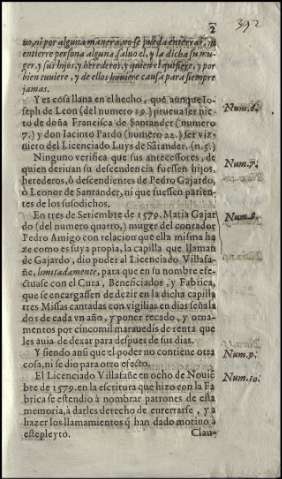 2
392
uo, ni por alguna manera, no se pueda enterrar, ni
entierre persona alguna, saluo el, y la dicha su mu-
ger, y sus hijos, y herederos, y quien el quisiere, y por
bien tuuiere, y de ellos huuiere causa para siempre
jamas.
Y es cosa llana en el hecho, que aunque Io-
seph de Leon (del numero 19.) prueua ser nie
to de doña Francisca de Santander (numero
7.) y don Iacinto Pardo (numero 22.) ser viz
nieto del Licenciado Luys de Sãtander. (n. 5.)
Num. 6.
Ninguno verifica que sus antecessores, de
quien deriuan su descendencia fuessen hijos,
herederos, ò descendientes de Pedro Gajardo,
ò Leonor de Santander, ni que fuessen parien-
tes de los susodichos.
Num. 7.
En tres de Setiembre de 1579. Maria Gajar
do (del numero quarto,) muger del contador
Pedro Amigo con relacion que ella misma ha
ze como es suya propia, la capilla que llaman
de Gajardo, dio poder al Licenciado Villafa-
ñe, limitadamente, para que en su nombre efe-
ctuase con el Cura, Beneficiados, y Fabrica,
que se encargassen de dezir en la dicha capilla
tres Missas cantadas con vigilias en dias señala
dos de cada vn año, y poner recado, y orna-
mentos por cinco mil marauedis de renta que
les auia de dexar para despues de sus dias.
Num. 8.
Y siendo ansi que el poder no contiene otra
cosa, ni se dio para otro efecto.
Num. 9.
El Licenciado Villafañe en ocho de Nouiẽ
bre de 1579. en la escritura que hizo con la Fa
brica se estendiò à nombrar patrones de esta
memoria, à darles derecho de enterrarse, y a
hazer los llamamientos q̃ han dado motiuo à
este pleyto.
Num. 10.
Clau-